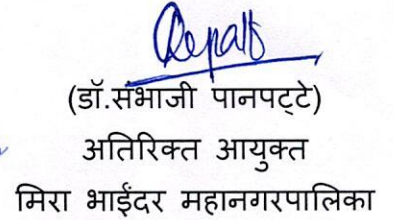 (डॉ.संभाजी पानपट्टे)
अतिरिक्त आयुक्त
मिरा भाईंदर महानगरपालिका